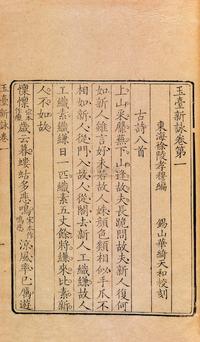 玉臺新詠卷第一
東海徐陵孝穆編
錫山華綺天和校刻
古詩八首
上山采蘼蕪下山逢故夫長跪問故夫新人復何
如新人雖言好未若故人姝顏色類相似手爪不
相如新人從門入故人從閤去新人工織縑故人
工織素織縑日一匹織素五丈餘將縑來比素新
人不如故
歲云暮螻蛄多悲鳴
涼風率已厲遊
玉臺新詠卷一